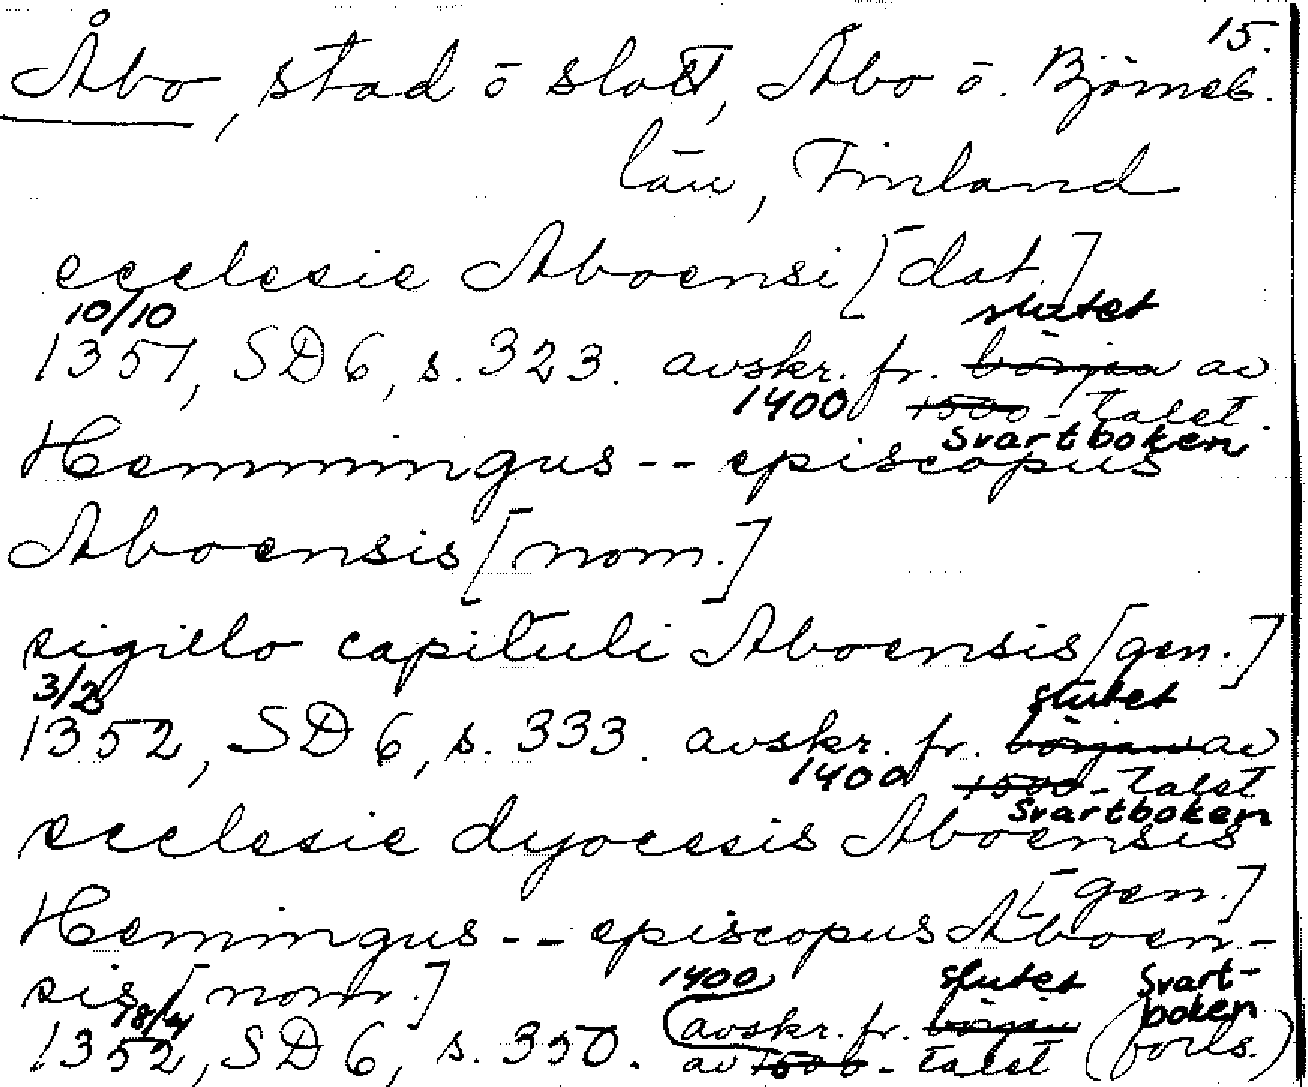 15.
Åbo, stad o slott, Åbo o. Björneb.
län, Finland
ecclesie Aboensi [dat.]
10/10 slutet
1351, SD 6, s. 323. avskr. fr. början av
1400 1500-talet.
Svartboken
Hemmingus -- episcopus
Aboensis [nom.]
sigillo capituli Aboensis [gen.]
3/2 slutet
1352, SD 6, s. 333. avskr. fr. början av
1400 1500-talet
Svartboken
ecclesie dyocesis Aboensis
[gen.]
Hemingus -- episcopus Aboen-
sis [nom.] 1400 slutet Svart-
18/4 boken
1352, SD 6, s. 350. avskr. fr. början (forts.)
av 1500-talet